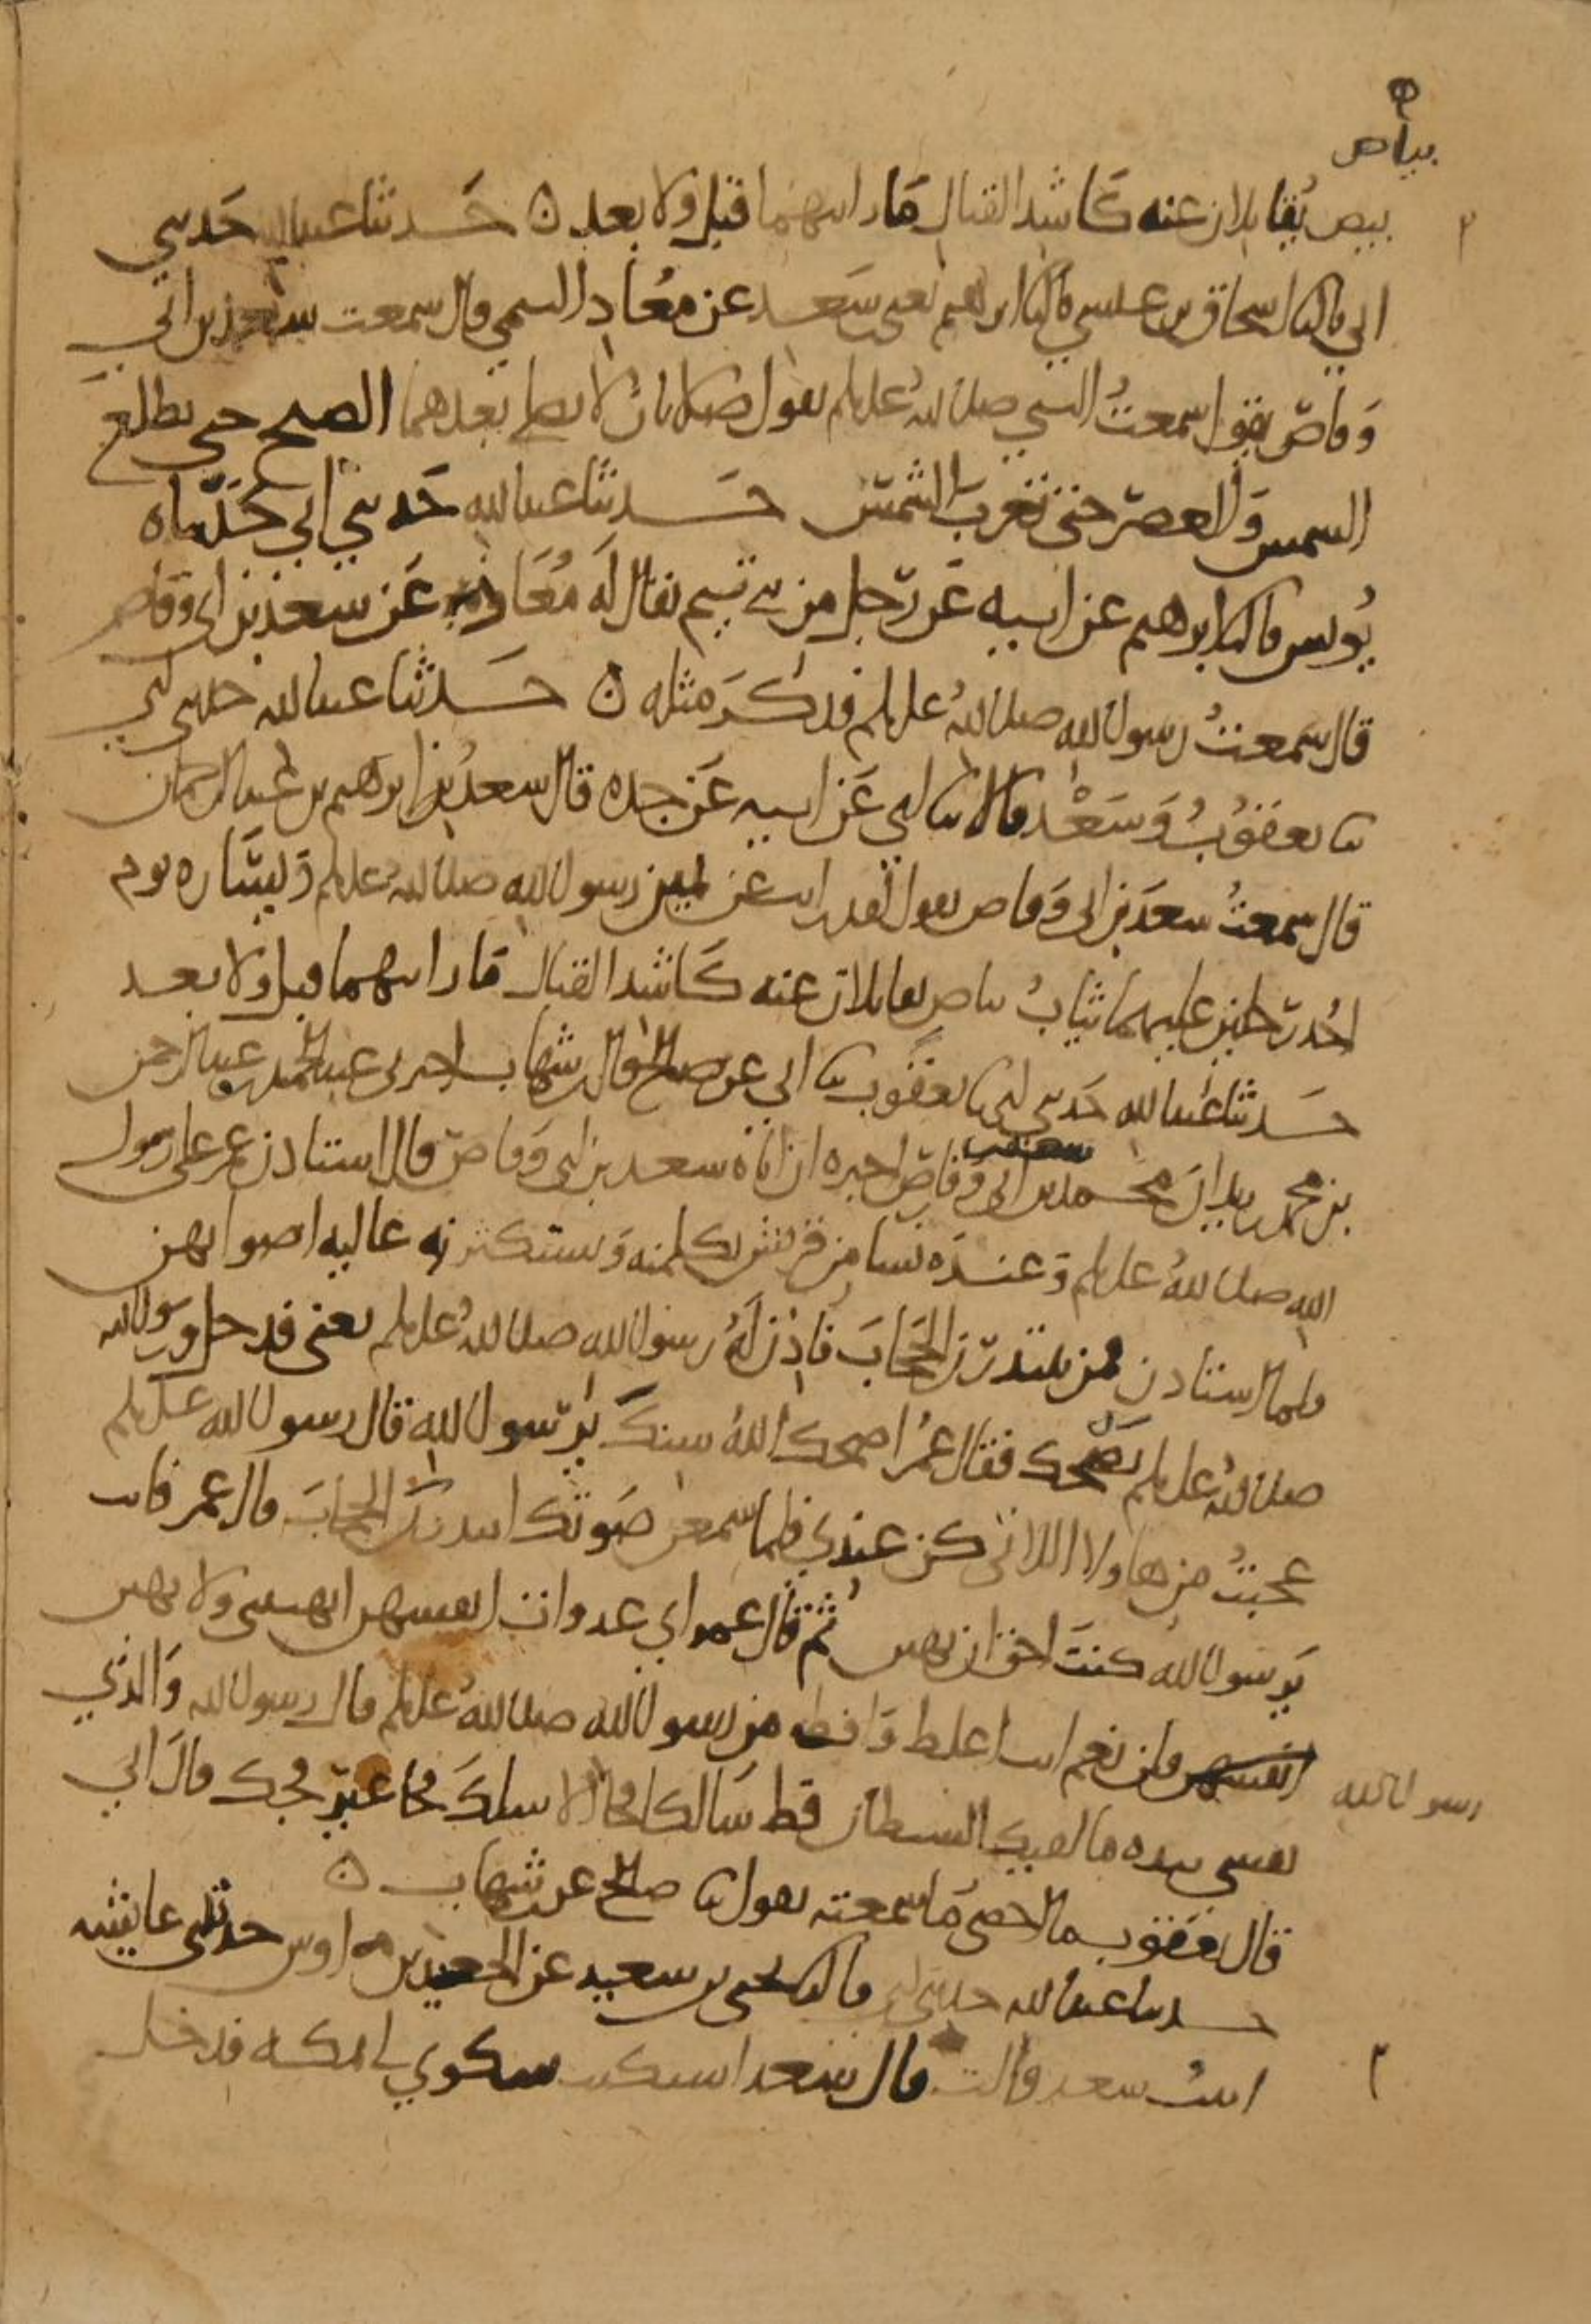 بياض
بيض يقاتلان عنه كاشد القتال ما رايتهما قبل ولا بعد ن حدثنا عبد الله حدثني
ابي قال ثنا اسحاق بن عيسى قال ثنا ابرهيم يعني سعد عن معاذ التيمي قال سمعت سعد بن ابي
وقاص يقول سمعت النبي صلى الله عليه وسلم يقول صلاتان لا يصلى بعدهما الصبح حتى تطلع
الشمس والعصر حتى تغرب الشمس حدثنا عبد الله حدثني ابي حدثناه
يونس قال ثنا ابرهيم عن ابيه عن رجل من بني تيم يقال له معاذ عن سعد بن ابي وقاص
قال سمعت رسول الله صلى الله عليه وسلم فذكر مثله ن حدثنا عبد الله حدثني ابي
ثنا يعقوب وسعد قالا ثنا ابي عن ابيه عن جده قال سعد بن ابرهيم بن عبد الرحمان
قال سمعت سعد بن ابي وقاص يقول لقد رايت عن يمين رسول الله صلى الله عليه وسلم ويساره يوم
احد رجلين عليهما ثياب بياض يقاتلان عنه كاشد القتال ما رايتهما قبل ولا بعد
حدثنا عبد الله حدثني ابي ثنا يعقوب ثنا ابي عن صالح قال ابن شهاب اخبرني عبد الحميد بن عبد الرحمن
بن محمد بن زيد ان محمد بن سعد بن ابي وقاص اخبره ان اباه سعد بن ابي وقاص قال استاذن عمر على رسول
الله صلى الله عليه وسلم وعنده نسا من قريش يكلمنه ويستكثرنه عالية اصواتهن
فلما استاذن قمن يبتدرن الحجاب فاذن له رسول الله صلى الله عليه وسلم يعني فدخل ورسول الله
صلى الله عليه وسلم يضحك فقال عمر اضحك الله سنك يرسول الله قال رسول الله عليه وسلم
عجبت من هاولا اللاتي كن عندي فلما سمعن صوتك ابتدرن الحجاب قال عمر فانت
يرسول الله كنت احق ان يهبن ثم قال عمر اي عدوات انفسهن اتهبنني ولا تهبن
رسول الله قلن نعم انت اغلظ وافظ من رسول الله صلى الله عليه وسلم قال رسول الله والذي
نفسي بيده ما لقيك الشيطان قط سالكا فجا الا سلك فجا غير فجك قال ابي
قال يعقوب ما احصي ما سمعته يقول ثنا صالح عن ابن شهاب ن
حدثنا عبد الله حدثني ابي قال ثنا يحيى بن سعيد عن الجعيد بن اوس حدثتني عايشه
ابنت سعد قالت قال سعد اشتكيت شكوى لي بمكه فدخل